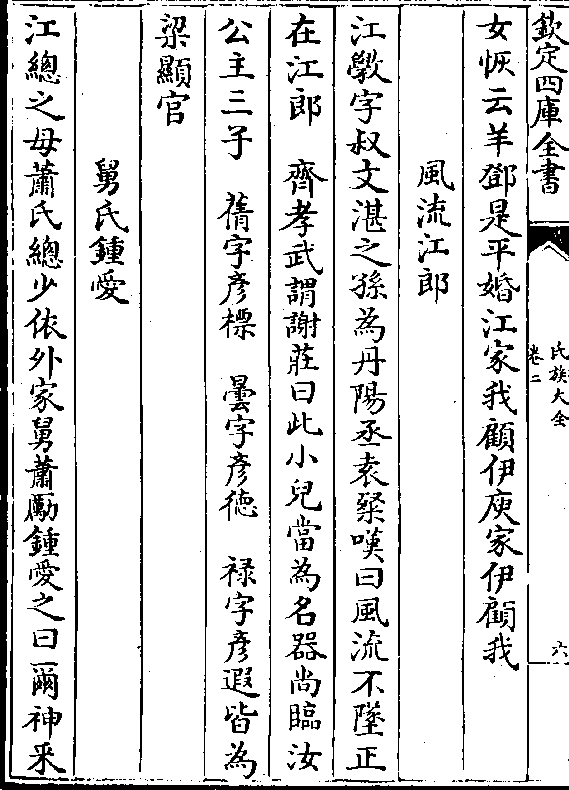 欽定四庫全書
氏族大全
卷二
六
女恢云羊鄧是平婚江家我顧伊庾家伊顧我
風流江郎
江斆字叔文湛之孫為丹陽丞袁粲嘆曰風流不墜正
在江郎 齊孝武謂謝莊曰此小兒當為名器尚臨汝
公主三子 蒨字彥標 曇字彥徳 禄字彥遐皆為
梁顯官
舅氏鍾愛
江總之母蕭氏總少依外家舅蕭勵鍾愛之曰爾神采